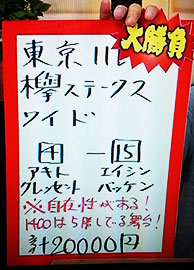 東京11R
大勝負
欅ステークス
ワイド
4 ー 15
アキト エイシン
クレッセント バッケン
※自在性がある!
1400は5勝している舞台!
20000円